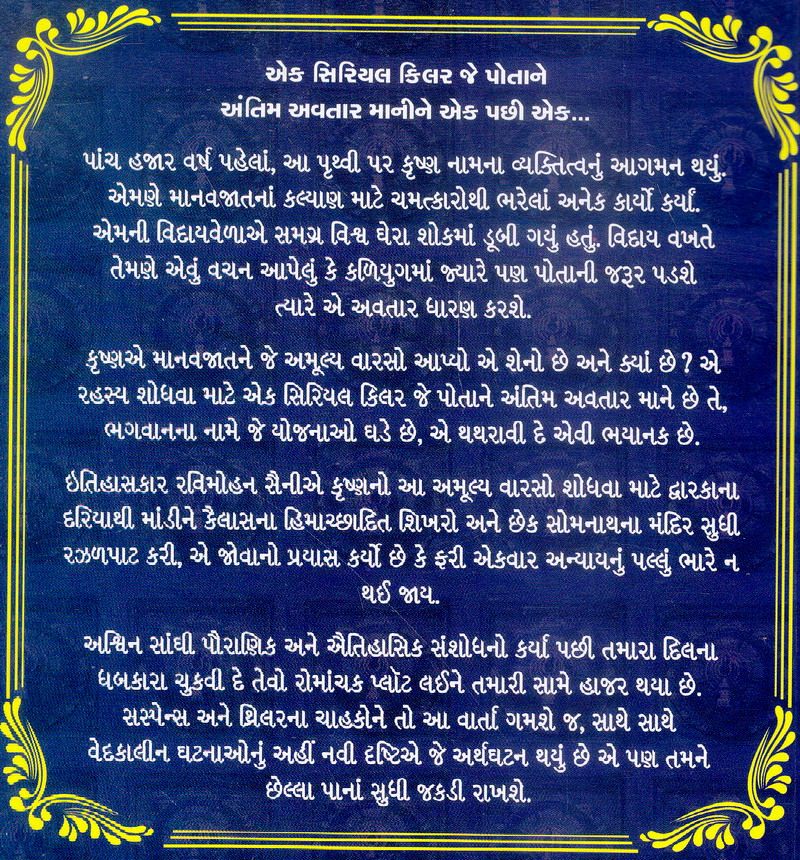 એક સિરિયલ કિલર જે પોતાને
અંતિમ અવતાર માનીને એક પછી એક...
પાંચ હજાર વર્ષ પહેલાં, આ પૃથ્વી પર કૃષ્ણ નામના વ્યક્તિત્વનું આગમન થયું.
એમણે માનવજાતનાં કલ્યાણ માટે ચમત્કારોથી ભરેલાં અનેક કાર્યો કર્યાં.
એમની વિદાયવેળાએ સમગ્ર વિશ્વ ઘેરા શોકમાં ડૂબી ગયું હતું. વિદાય વખતે
તેમણે એવું વચન આપેલું કે કળિયુગમાં જ્યારે પણ પોતાની જરૂર પડશે
ત્યારે એ અવતાર ધારણ કરશે.
કૃષ્ણએ માનવજાતને જે અમૂલ્ય વારસો આપ્યો એ શેનો છે અને ક્યાં છે? એ
રહસ્ય શોધવા માટે એક સિરિયલ કિલર જે પોતાને અંતિમ અવતાર માને છે તે,
ભગવાનના નામે જે યોજનાઓ ઘડે છે, એ થથરાવી દે એવી ભયાનક છે.
ઇતિહાસકાર રવિમોહન સૈનીએ કૃષ્ણનો આ અમૂલ્ય વારસો શોધવા માટે દ્વારકાના
દરિયાથી માંડીને કૈલાસના હિમાચ્છાદિત શિખરો અને છેક સોમનાથના મંદિર સુધી
રઝળપાટ કરી, એ જોવાનો પ્રયાસ કર્યો છે કે ફરી એકવાર અન્યાયનું પલ્લું ભારે ન
થઈ જાય.
અશ્વિન સાંઘી પૌરાણિક અને ઐતિહાસિક સંશોધનો કર્યા પછી તમારા દિલના
ધબકારા ચુકવી દે તેવો રોમાંચક પ્લૉટ લઈને તમારી સામે હાજર થયા છે.
સસ્પેન્સ અને થ્રિલરના ચાહકોને તો આ વાર્તા ગમશે જ, સાથે સાથે
વેદકાલીન ઘટનાઓનું અહીં નવી દૃષ્ટિએ જે અર્થઘટન થયું છે એ પણ તમને
છેલ્લા પાનાં સુધી જકડી રાખશે.